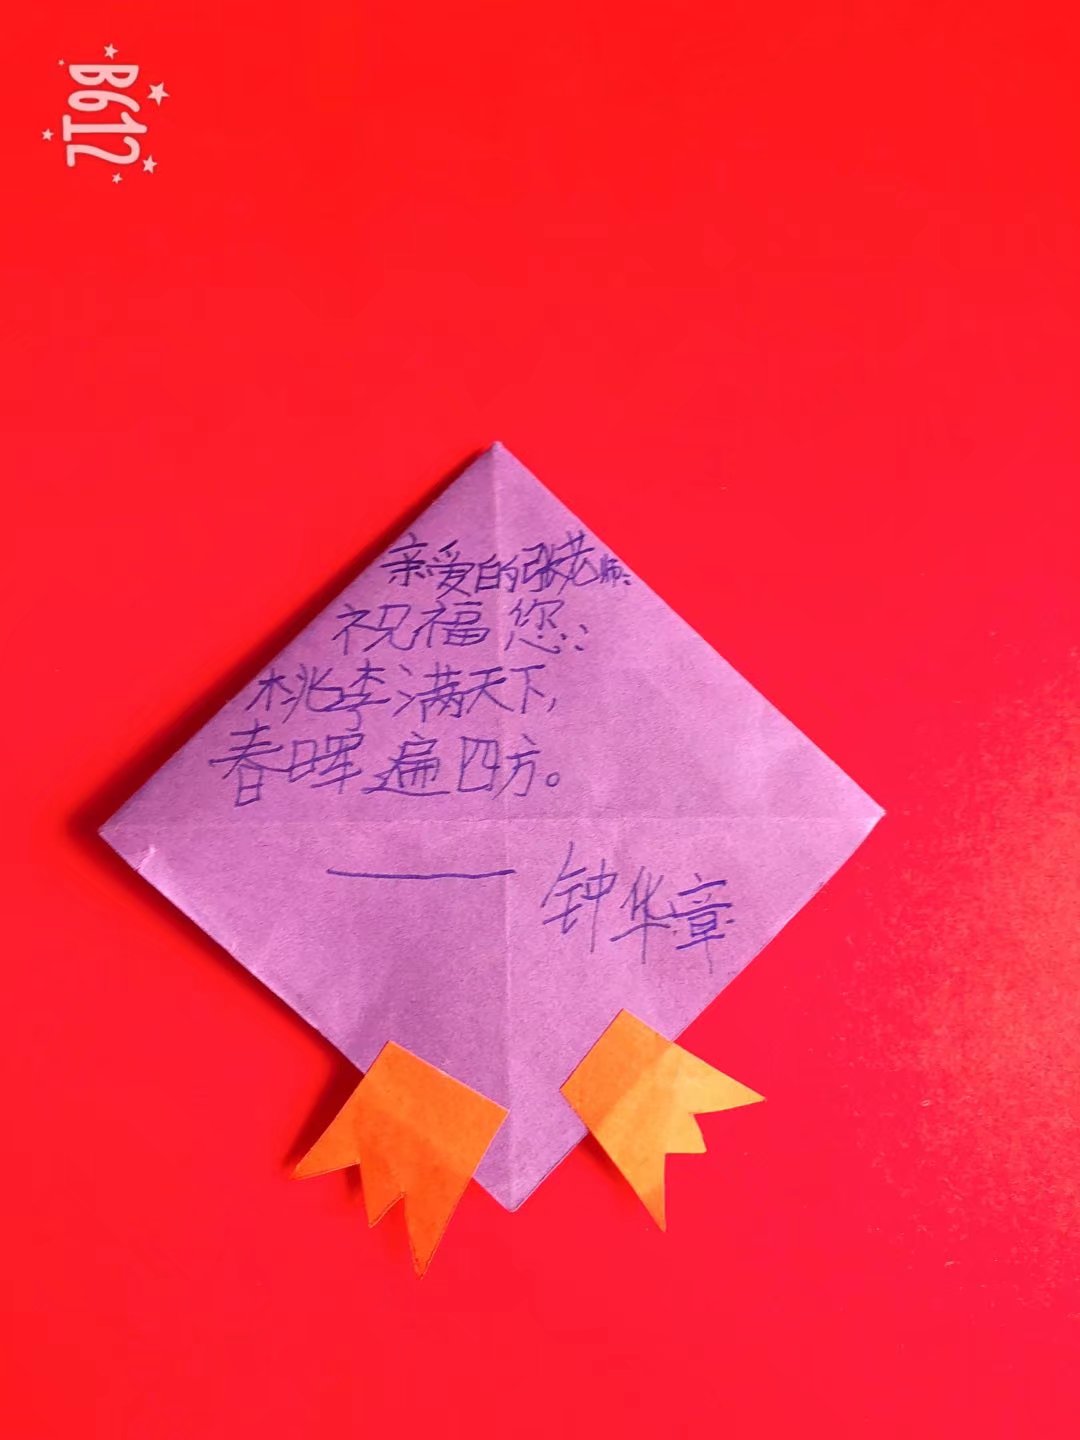 B612
亲爱的张老师：
祝福您：
桃李满天下，
春晖遍四方。
——钟华章